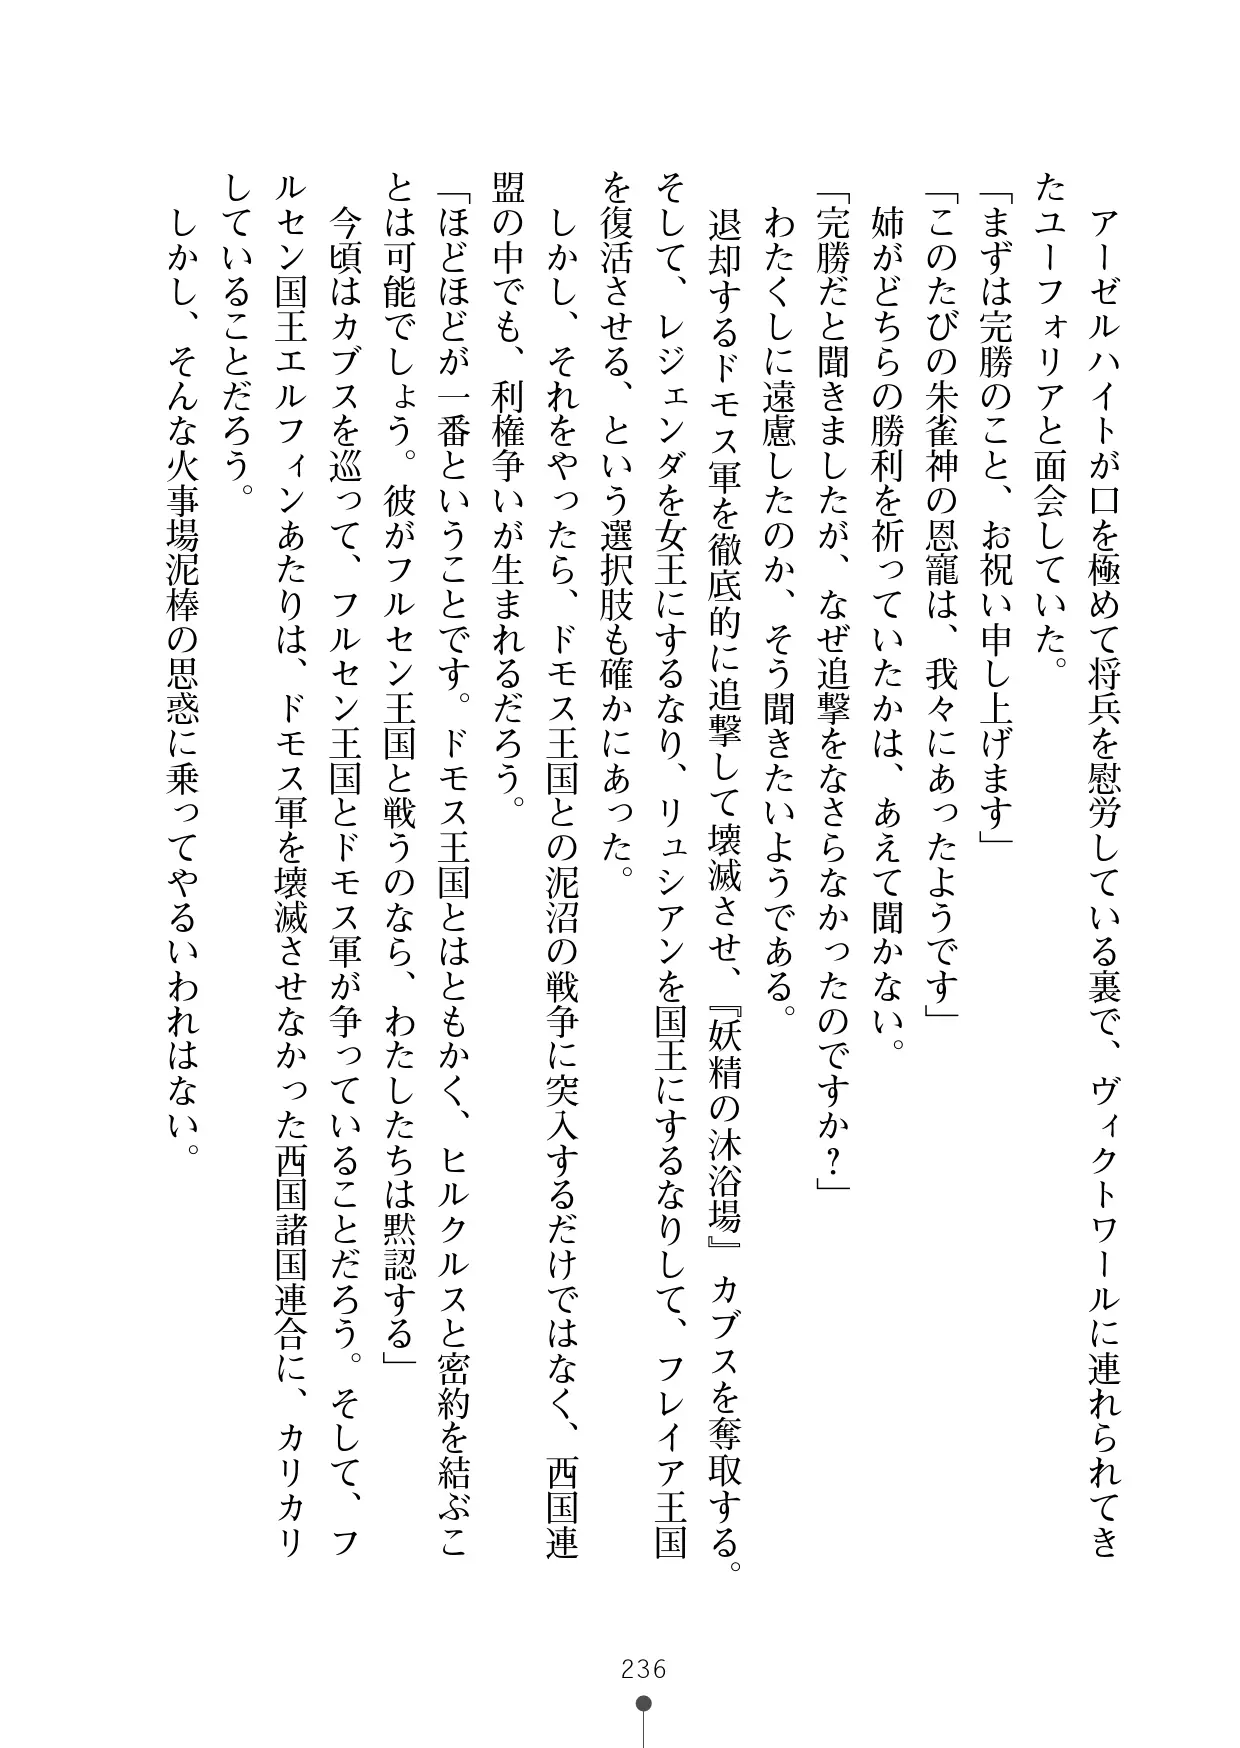 アーゼルハイトが口を極めて将兵を慰労している裏で、ヴィクトワールに連れられてき
たユーフォリアと面会していた。
「まずは完勝のこと、お祝い申し上げます」
「このたびの朱雀神の恩寵は、我々にあったようです」
姉がどちらの勝利を祈っていたかは、あえて聞かない。
「完勝だと聞きましたが、なぜ追撃をなさらなかったのですか？」
わたくしに遠慮したのか、そう聞きたいようである。
退却するドモス軍を徹底的に追撃して壊滅させ、『妖精の沐浴場』カブスを奪取する。
そして、レジェンダを女王にするなり、リュシアンを国王にするなりして、フレイア王国
を復活させる、という選択肢も確かにあった。
しかし、それをやったら、ドモス王国との泥沼の戦争に突入するだけではなく、西国連
盟の中でも、利権争いが生まれるだろう。
「ほどほどが一番ということです。ドモス王国とはともかく、ヒルクルスと密約を結ぶこ
とは可能でしょう。彼がフルセン王国と戦うのなら、わたしたちは黙認する」
今頃はカブスを巡って、フルセン王国とドモス軍が争っていることだろう。そして、フ
ルセン国王エルフィンあたりは、ドモス軍を壊滅させなかった西国諸国連合に、カリカリ
していることだろう。
しかし、そんな火事場泥棒の思惑に乗ってやるいわれはない。
236